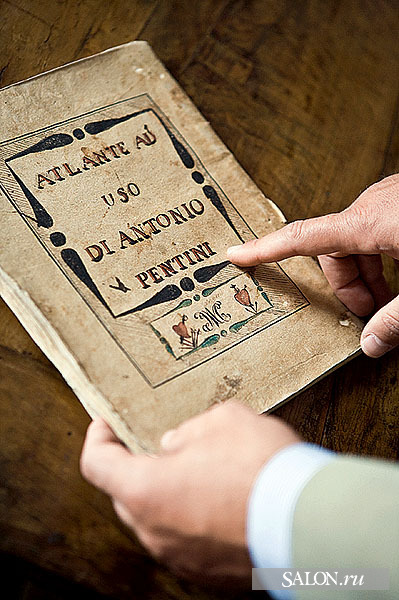 ATLANTE AD
USO
DI ANTONIO
PENTINI
SALON.ru